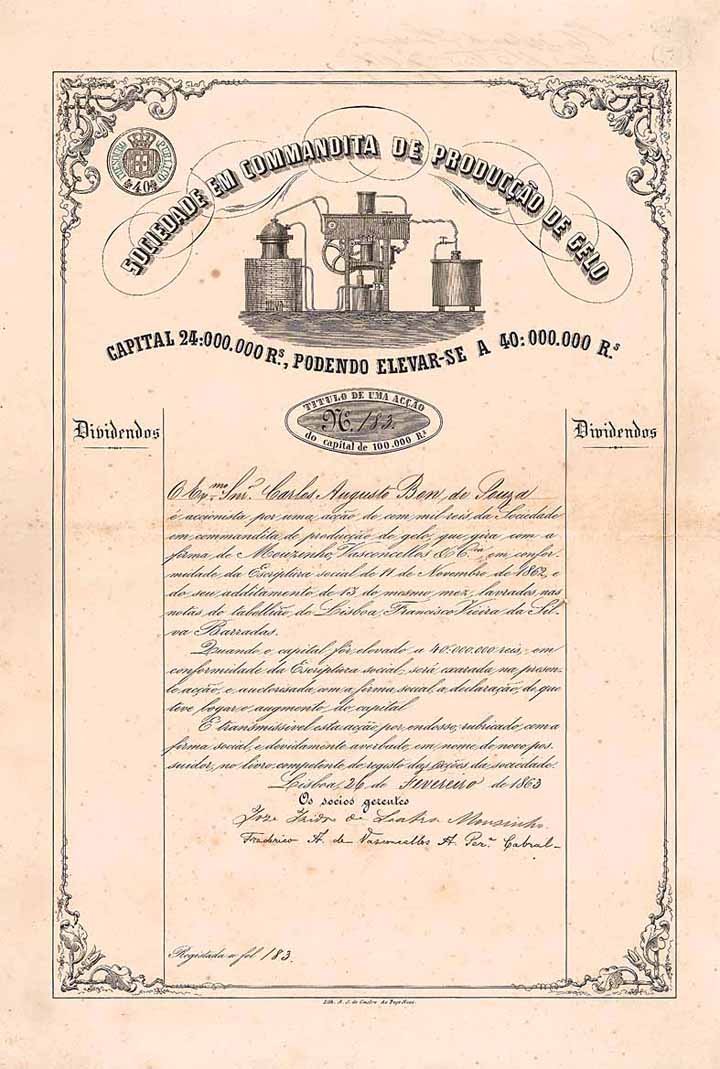 IMPOSTO DO SELLO
40 rs
SOCIEDADE EM COMMANDITA DE PRODUCÇÃO DE GELO
CAPITAL 24:000.000 Rˢ., PODENDO ELEVAR-SE A 40:000.000 Rˢ
TITULO DE UMA ACÇÃO
Nº. 183.
do capital de 100.000 Rˢ
Dividendos
Dividendos
O Exᵐᵒ Snr. Carlos Augusto Bon de Souza
é accionista por uma acção de cem mil reis da Sociedade
em commandita de producção de gelo, que gira com a
firma de Mouzinho, Vasconcellos & Cª, em confor-
midade da Escriptura social de 11 de Novembro de 1862, e
do seu additamento de 13 do mesmo mez, lavrados nas
notas do tabellião de Lisboa, Francisco Vieira da Sil-
va Barradas.
Quando o capital fôr elevado a 40:000.000 reis, em
conformidade da Escriptura social, será exarada na presen-
te acção, e auctorisada com a firma social, a declaração de que
teve logar o augmento do capital.
É transmissivel esta acção por endosso, rubricado com a
firma social, e devidamente averbado, em nome do novo pos-
suidor, no livro competente de registo das acções da sociedade.
Lisboa, 26 de Fevereiro de 1863
Os socios gerentes
Joze Izidro de Mousinho.
Frederico A. de Vasconcellos A. Perª Cabral
Registada a fol 183.
Lith. A. S. de Castro